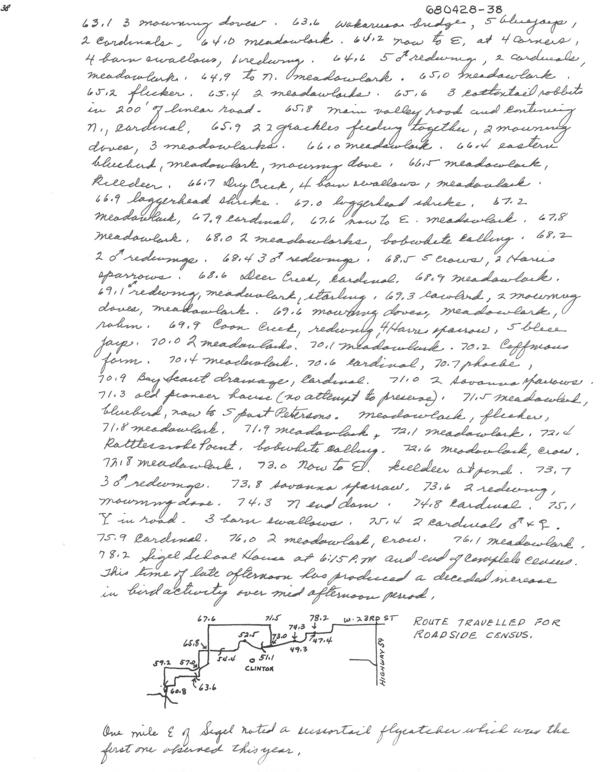 38
680428-38
63.1 3 mourning doves. 63.6 Wakarusa bridge, 5 bluejays,
2 cardinals. 64.0 meadowlark. 64.2 now to E. at 4 corners,
4 barn swallows, 1 redwing. 64.6 5 ♂ redwing, 2 cardinals,
meadowlark. 64.9 to N. meadowlark. 65.0 meadowlark.
65.2 flicker. 65.4 2 meadowlarks. 65.6 3 cottontail rabbits
in 200' of linear road. 65.8 main valley road and continuing
N., cardinal. 65.9 22 grackles feeding together, 2 mourning
doves, 3 meadowlarks. 66.0 meadowlark. 66.4 eastern
bluebird, meadowlark, mourning dove. 66.5 meadowlark,
killdeer. 66.7 Dry Creek, 4 barn swallows, meadowlark.
66.9 loggerhead shrike. 67.0 loggerhead shrike. 67.2
meadowlark, 67.9 cardinal. 67.6 now to E. meadowlark. 67.8
meadowlark. 68.0 2 meadowlarks, bobwhite calling. 68.2
2 ♂ redwings. 68.4 3 ♂ redwings. 68.5 5 crows, 2 Harris
sparrows. 68.6 Deer Creek, cardinal. 68.9 meadowlark.
69.1 ♂ redwing, meadowlark, starling. 69.3 cowbird, 2 mourning
doves, meadowlark. 69.6 mourning doves, meadowlark,
robin. 69.9 Coon Creek, redwing, 4 Harris sparrow, 5 blue
jays. 70.0 2 meadowlarks. 70.1 meadowlark. 70.2 Coffmans
farm. 70.4 meadowlark. 70.6 cardinal, 70.7 phoebe,
70.9 Boy Scout drainage, cardinal. 71.0 2 savanna sparrows.
71.3 old pioneer house (no attempt to preserve). 71.5 meadowlark,
bluebird, now to S past Petersons. meadowlark, flicker,
71.8 meadowlark. 71.9 meadowlark, 72.1 meadowlark. 72.4
Rattlesnake Point. bobwhite calling. 72.6 meadowlark, crow.
72.8 meadowlark. 73.0 now to E. killdeer at pond. 73.7
3 ♂ redwings. 73.8 savanna sparrow. 73.6 2 redwing,
mourning dove. 74.3 N end dam. 74.8 cardinal. 75.1
Y in road. 3 barn swallows. 75.4 2 cardinals ♂ & ♀.
75.9 cardinal. 76.0 2 meadowlark, crow. 76.1 meadowlark.
78.2 Sigel School House at 6:15 P.M and end of complete census.
This time of late afternoon has produced a decided increase
in bird activity over mid afternoon period.
67.6 71.5 78.2 W. 23RD ST
74.3
65.8 52.5 73.0 47.4
49.3
59.2 57.0 54.4 51.1
CLINTON
60.8 63.6
HIGHWAY 59
ROUTE TRAVELLED FOR
ROADSIDE CENSUS.
One mile E of Sigel noted a scissortail flycatcher which was the
first one observed this year.